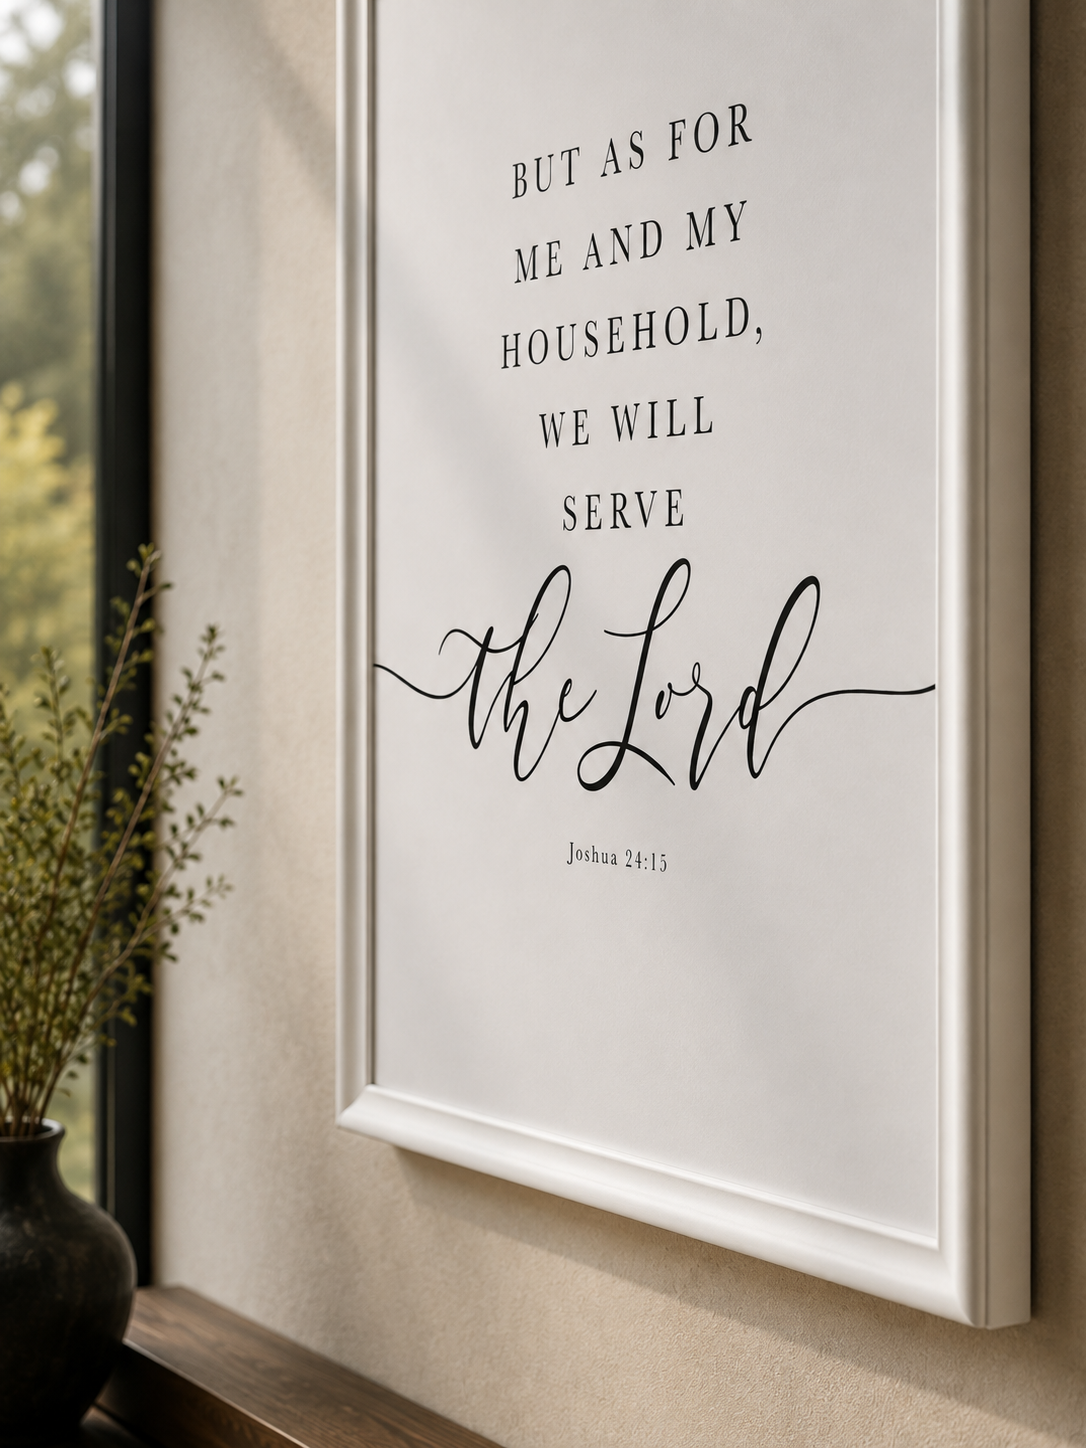 BUT AS FOR
ME AND MY
HOUSEHOLD,
WE WILL
SERVE
the Lord
Joshua 24:15